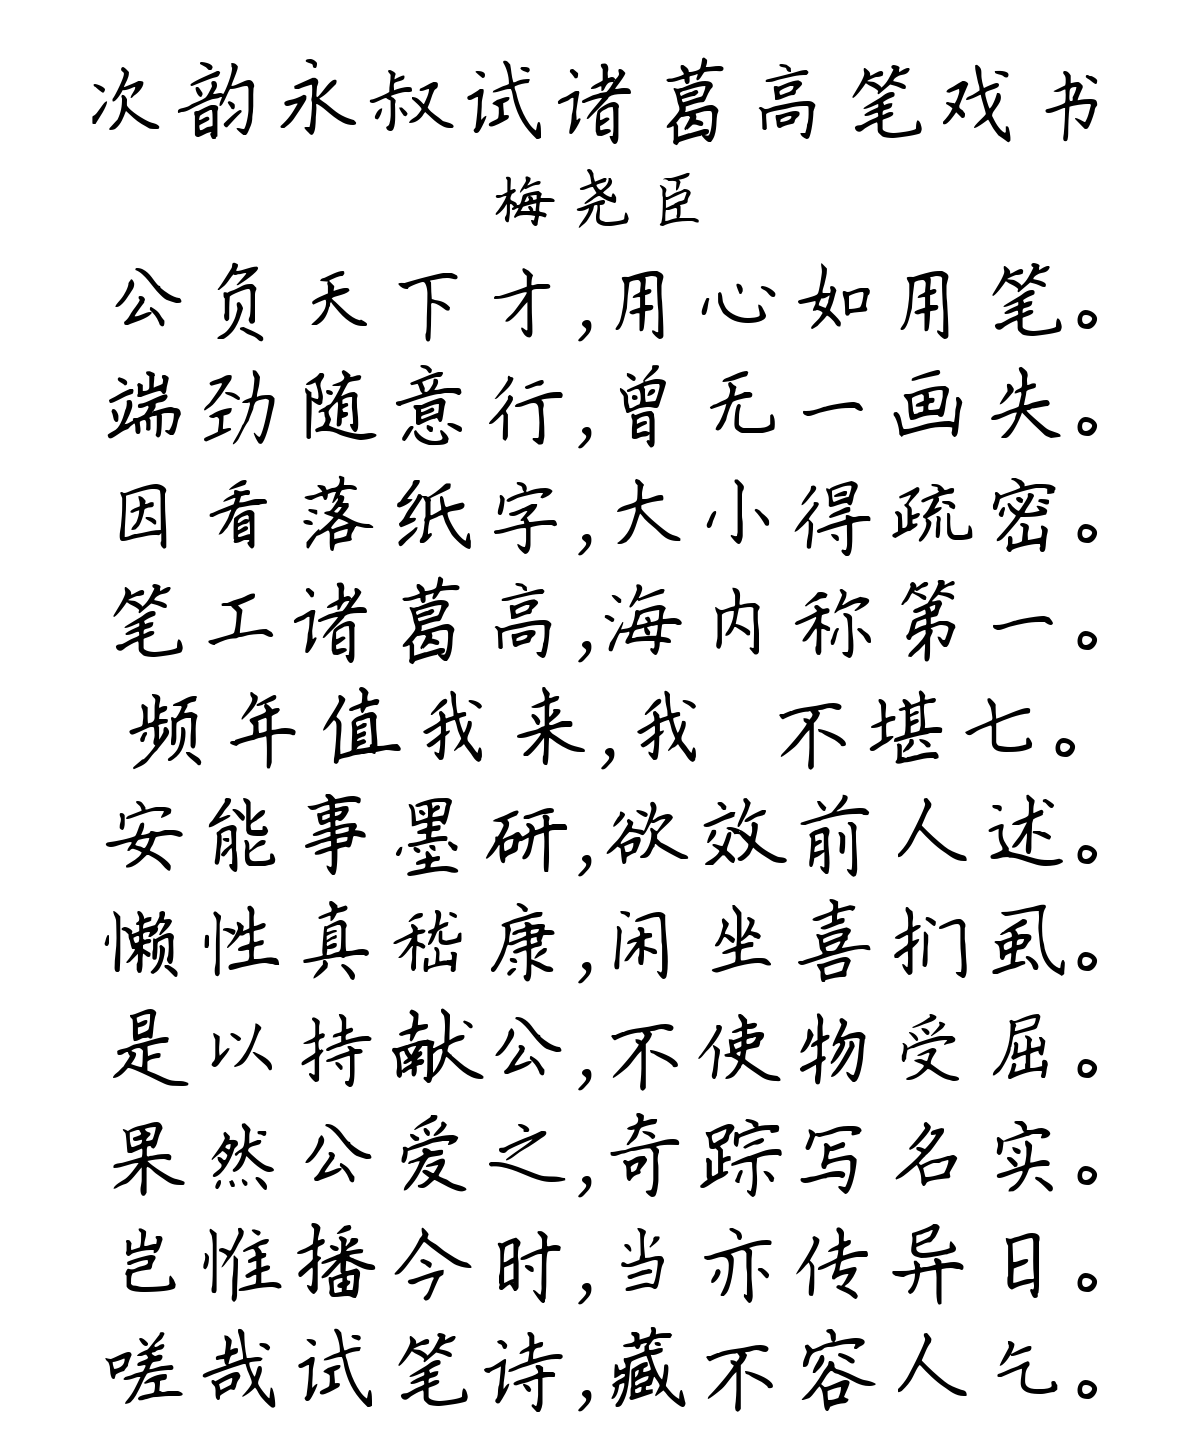 次韵永叔试诸葛高笔戏书
梅尧臣
公负天下才,用心如用笔。
端劲随意行,曾无一画失。
因看落纸字,大小得疏密。
笔工诸葛高,海内称第一。
频年值我来,我 不堪七。
安能事墨研,欲效前人述。
懒性真嵇康,闲坐喜扪虱。
是以持献公,不使物受屈。
果然公爱之,奇踪写名实。
岂惟播今时,当亦传异日。
嗟哉试笔诗,藏不容人乞。